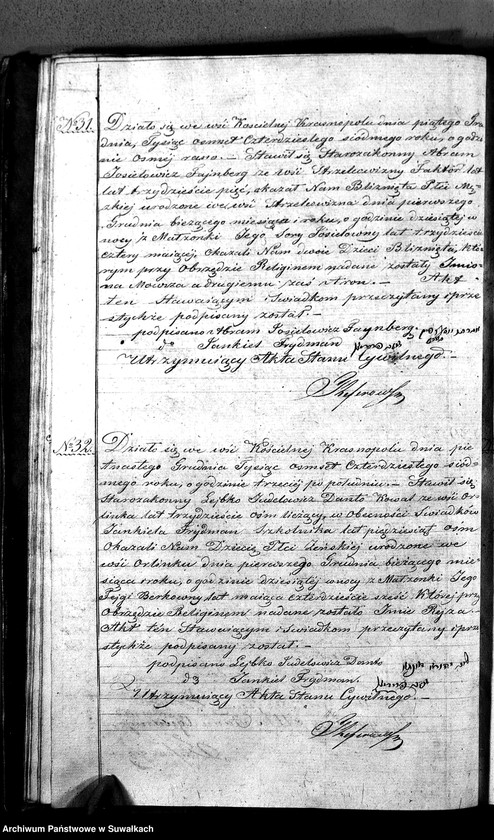 No 31.
Działo się we wsi Kościelnej Krasnopolu dnia piątego Gru-
dnia, Tysiąc osmset Czterdziestego siódmego roku, o godzi-
nie osmej rano. – Stawił się Starozakonny Abram
Josielowicz Fajnberg ze wsi Strzelcowizny Faktór lat
lat trzydzieście pięć, okazał Nam Bliznięta Płci Mę-
zkiej urodzone we wsi Strzelcowizna dnia pierwszego
Grudnia bieżącego miesiąca i roku, o godzinie dziesiątej w
nocy z Małżonki Jego Sory Josielowny lat trzydzieści
cztery mającej, Okazali Nam dwoie Dzieci Bliznięta, któ-
rym przy Obrzędzie Religijnem nadane zostały Imio-
na Mowsza a drugiemu zaś Aron. – Akt
ten Stawającym i Świadkom przeczytany i prze-
stychże podpisany został. –
podpisano Abram Josielowicz Faynberg.
do Jankiel Frydman
Utrzymujący Akta Stanu Cywilnego. –
No 32.
Działo się we wsi Kościelnej Krasnopolu dnia pię
tnastego Grudnia Tysiąc osmset Czterdziestego siód-
mego roku, o godzinie trzeciej po południu. – Stawił się
Starozakonny Lejbko Judelowicz Danto Kowal ze wsi Or-
linka lat trzydzieście ośm liczący, w Obecności Świadków
Jankiela Frydman Szkolnika lat pięćdziesiąt ośm
Okazali Nam Dziecię Płci Żeńskiej urodzone we
wsi Orlinku dnia pierwszego Grudnia bieżącego mie-
siąca i roku, o godzinie dziesiątej w nocy z Małżonki Jego
Fejgi Berkowny lat mająca Czterdzieście sześć Której przy
Obrzędzie Religijnem nadane zostało Imie Rejza. –
Akt ten Stawającym i Świadkom przeczytany i prze-
stychże podpisany został. –
podpisano Lejbko Judelowicz Danto
do Jankiel Frydman.
Utrzymujący Akta Stanu Cywilnego. –
Archiwum Państwowe w Suwałkach